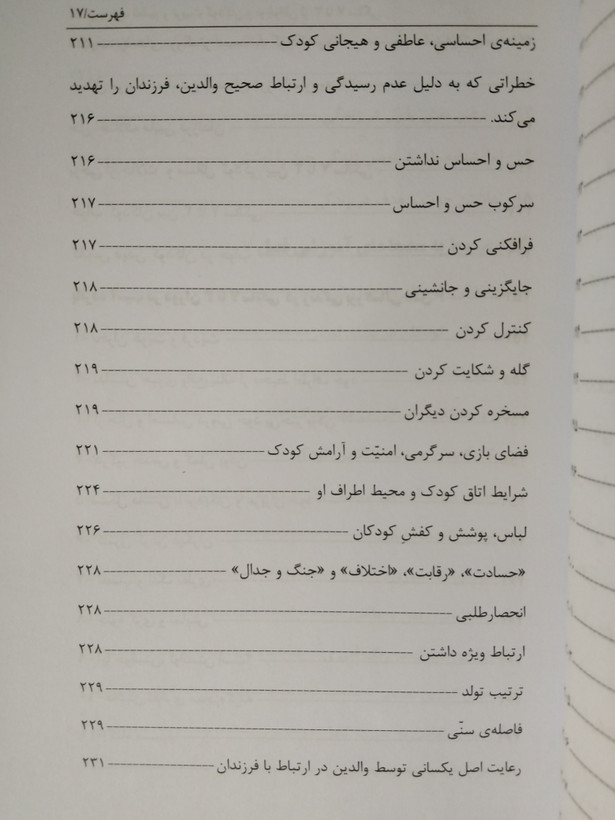 فهرست/۱۷
زمینه‌ی احساسی، عاطفی و هیجانی کودک ---------- ۲۱۱
خطراتی که به دلیل عدم رسیدگی و ارتباط صحیح والدین، فرزندان را تهدید
می‌کند. ---------- ۲۱۶
حس و احساس نداشتن ---------- ۲۱۶
سرکوب حس و احساس ---------- ۲۱۷
فرافکنی کردن ---------- ۲۱۷
جایگزینی و جانشینی ---------- ۲۱۸
کنترل کردن ---------- ۲۱۸
گله و شکایت کردن ---------- ۲۱۹
مسخره کردن دیگران ---------- ۲۱۹
فضای بازی، سرگرمی، امنیّت و آرامش کودک ---------- ۲۲۱
شرایط اتاق کودک و محیط اطراف او ---------- ۲۲۴
لباس، پوشش و کفشِ کودکان ---------- ۲۲۶
«حسادت»، «رقابت»، «اختلاف» و «جنگ و جدال» ---------- ۲۲۸
انحصارطلبی ---------- ۲۲۸
ارتباط ویژه داشتن ---------- ۲۲۸
ترتیب تولد ---------- ۲۲۹
فاصله‌ی سنّی ---------- ۲۲۹
رعایت اصل یکسانی توسط والدین در ارتباط با فرزندان ---------- ۲۳۱